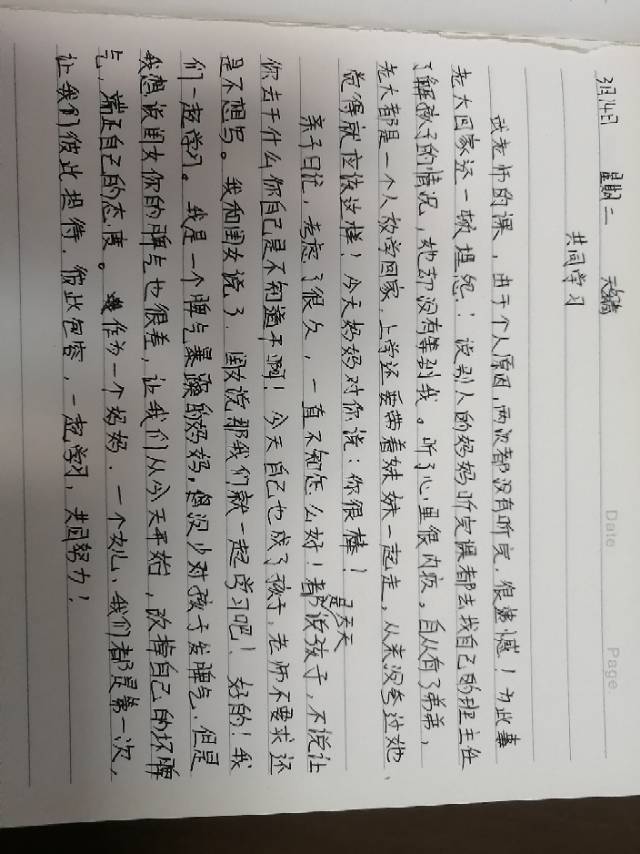 3月14日 星期二 天气:晴
共同学习
武老师的课,由于个人原因,两次都没有听完,很遗憾!为此事
老大回家还一顿埋怨:说别人的妈妈听完课都去找自己的班主任
了解孩子的情况,她却没有等到我。听了心里很内疚,自从有了弟弟,
老大都是一个人放学回家,上学还要带着妹妹一起走,从来没夸过她,
觉得就应该这样!今天妈妈对你说:你很棒!
是天天
亲子日记,考虑了很久,一直不知怎么好!都说孩子,不说让
你去干什么你自己是不知道干啊!今天自己也成了孩子,老师不要求还
是不想写。我和闺女说了,闺女说那我们就一起学习吧!好的!我
们一起学习。我是一个脾气暴躁的妈妈,没少对孩子发脾气,但是
我想说闺女你的脾气也很差,让我们从今天开始,改掉自己的坏脾
气,端正自己的态度。作为一个妈妈,一个女儿,我们都是第一次,
让我们彼此担待,彼此包容,一起学习,共同努力!
Date
Page